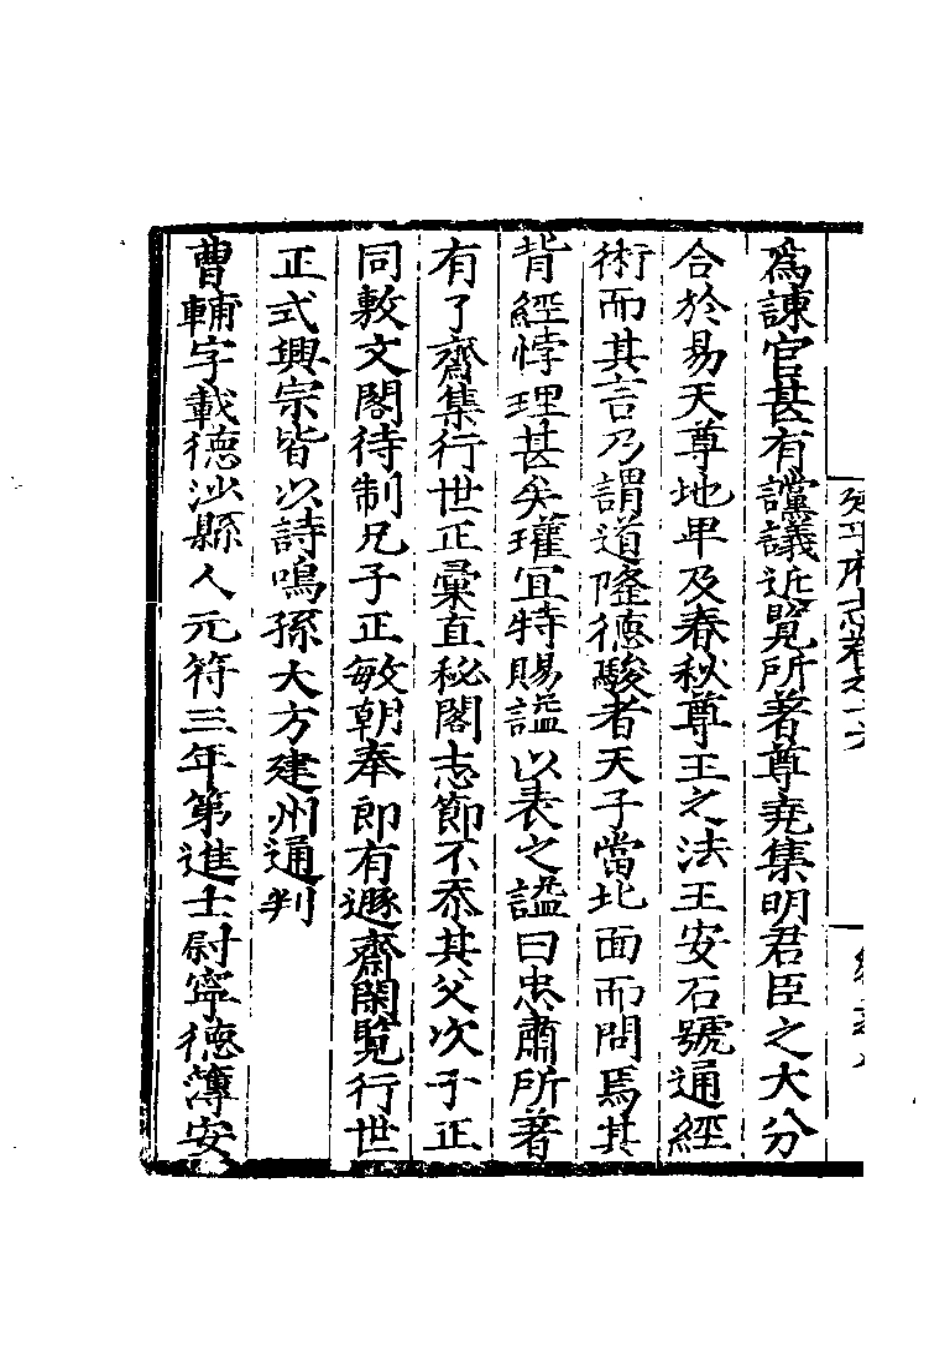 爲諫官甚有讜議近覽所著尊堯集明君臣之大分
合於易天尊地卑及春秋尊王之法王安石號通經
術而其言乃謂道隆德駿者天子當北面而問焉其
背經悖理甚矣瓘宜特賜謚以表之謚曰忠肅所著
有了齋集行世正彙直秘閣志節不忝其父次子正
同敷文閣待制兄子正敏朝奉郎有遯齋閑覽行世
正式興宗皆以詩鳴孫大方建州通判
曹輔字載德沙縣人元符三年第進士尉寧德簿安